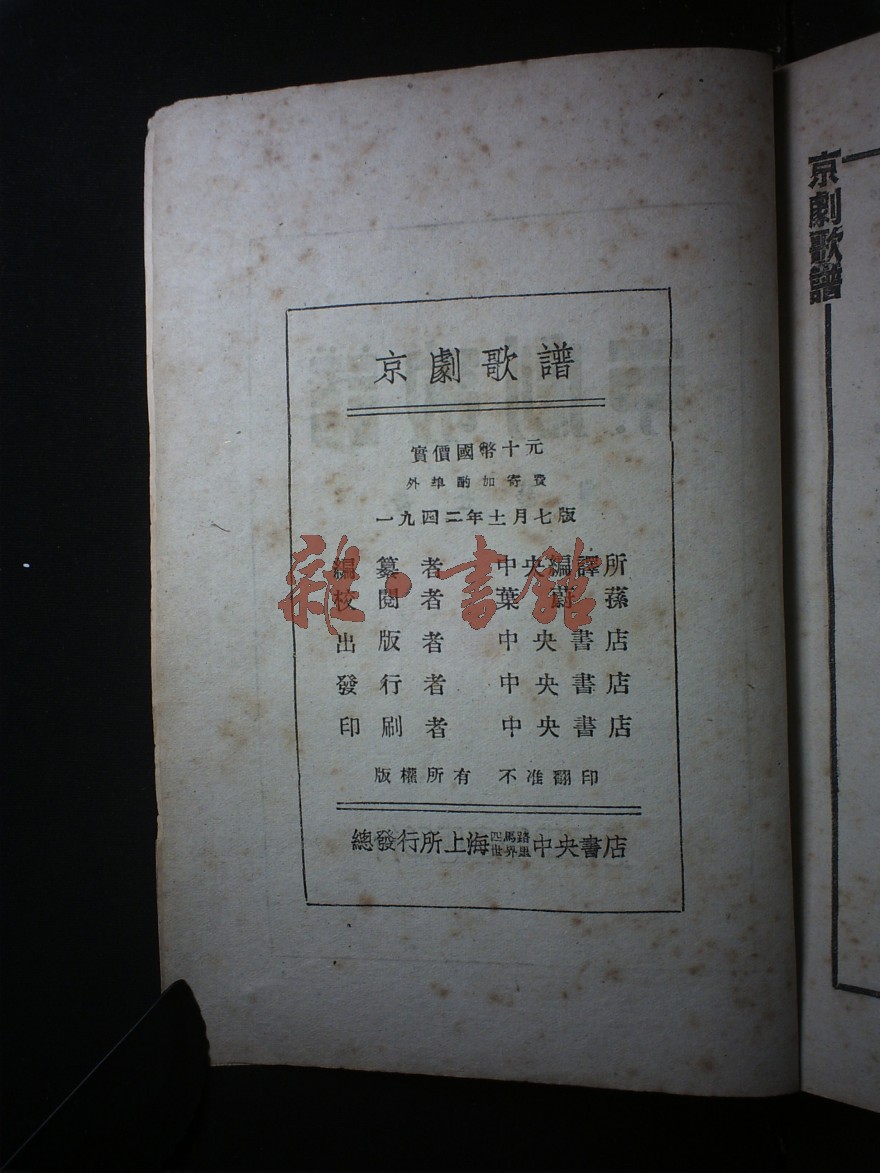 京劇歌譜
實價國幣十元
外埠酌加寄費
一九四二年十一月七版
編纂者 中央編譯所
校閱者 葉蔚蓀
出版者 中央書店
發行者 中央書店
印刷者 中央書店
版權所有 不准翻印
總發行所上海四馬路世界里中央書店
雜·書館
京劇歌譜